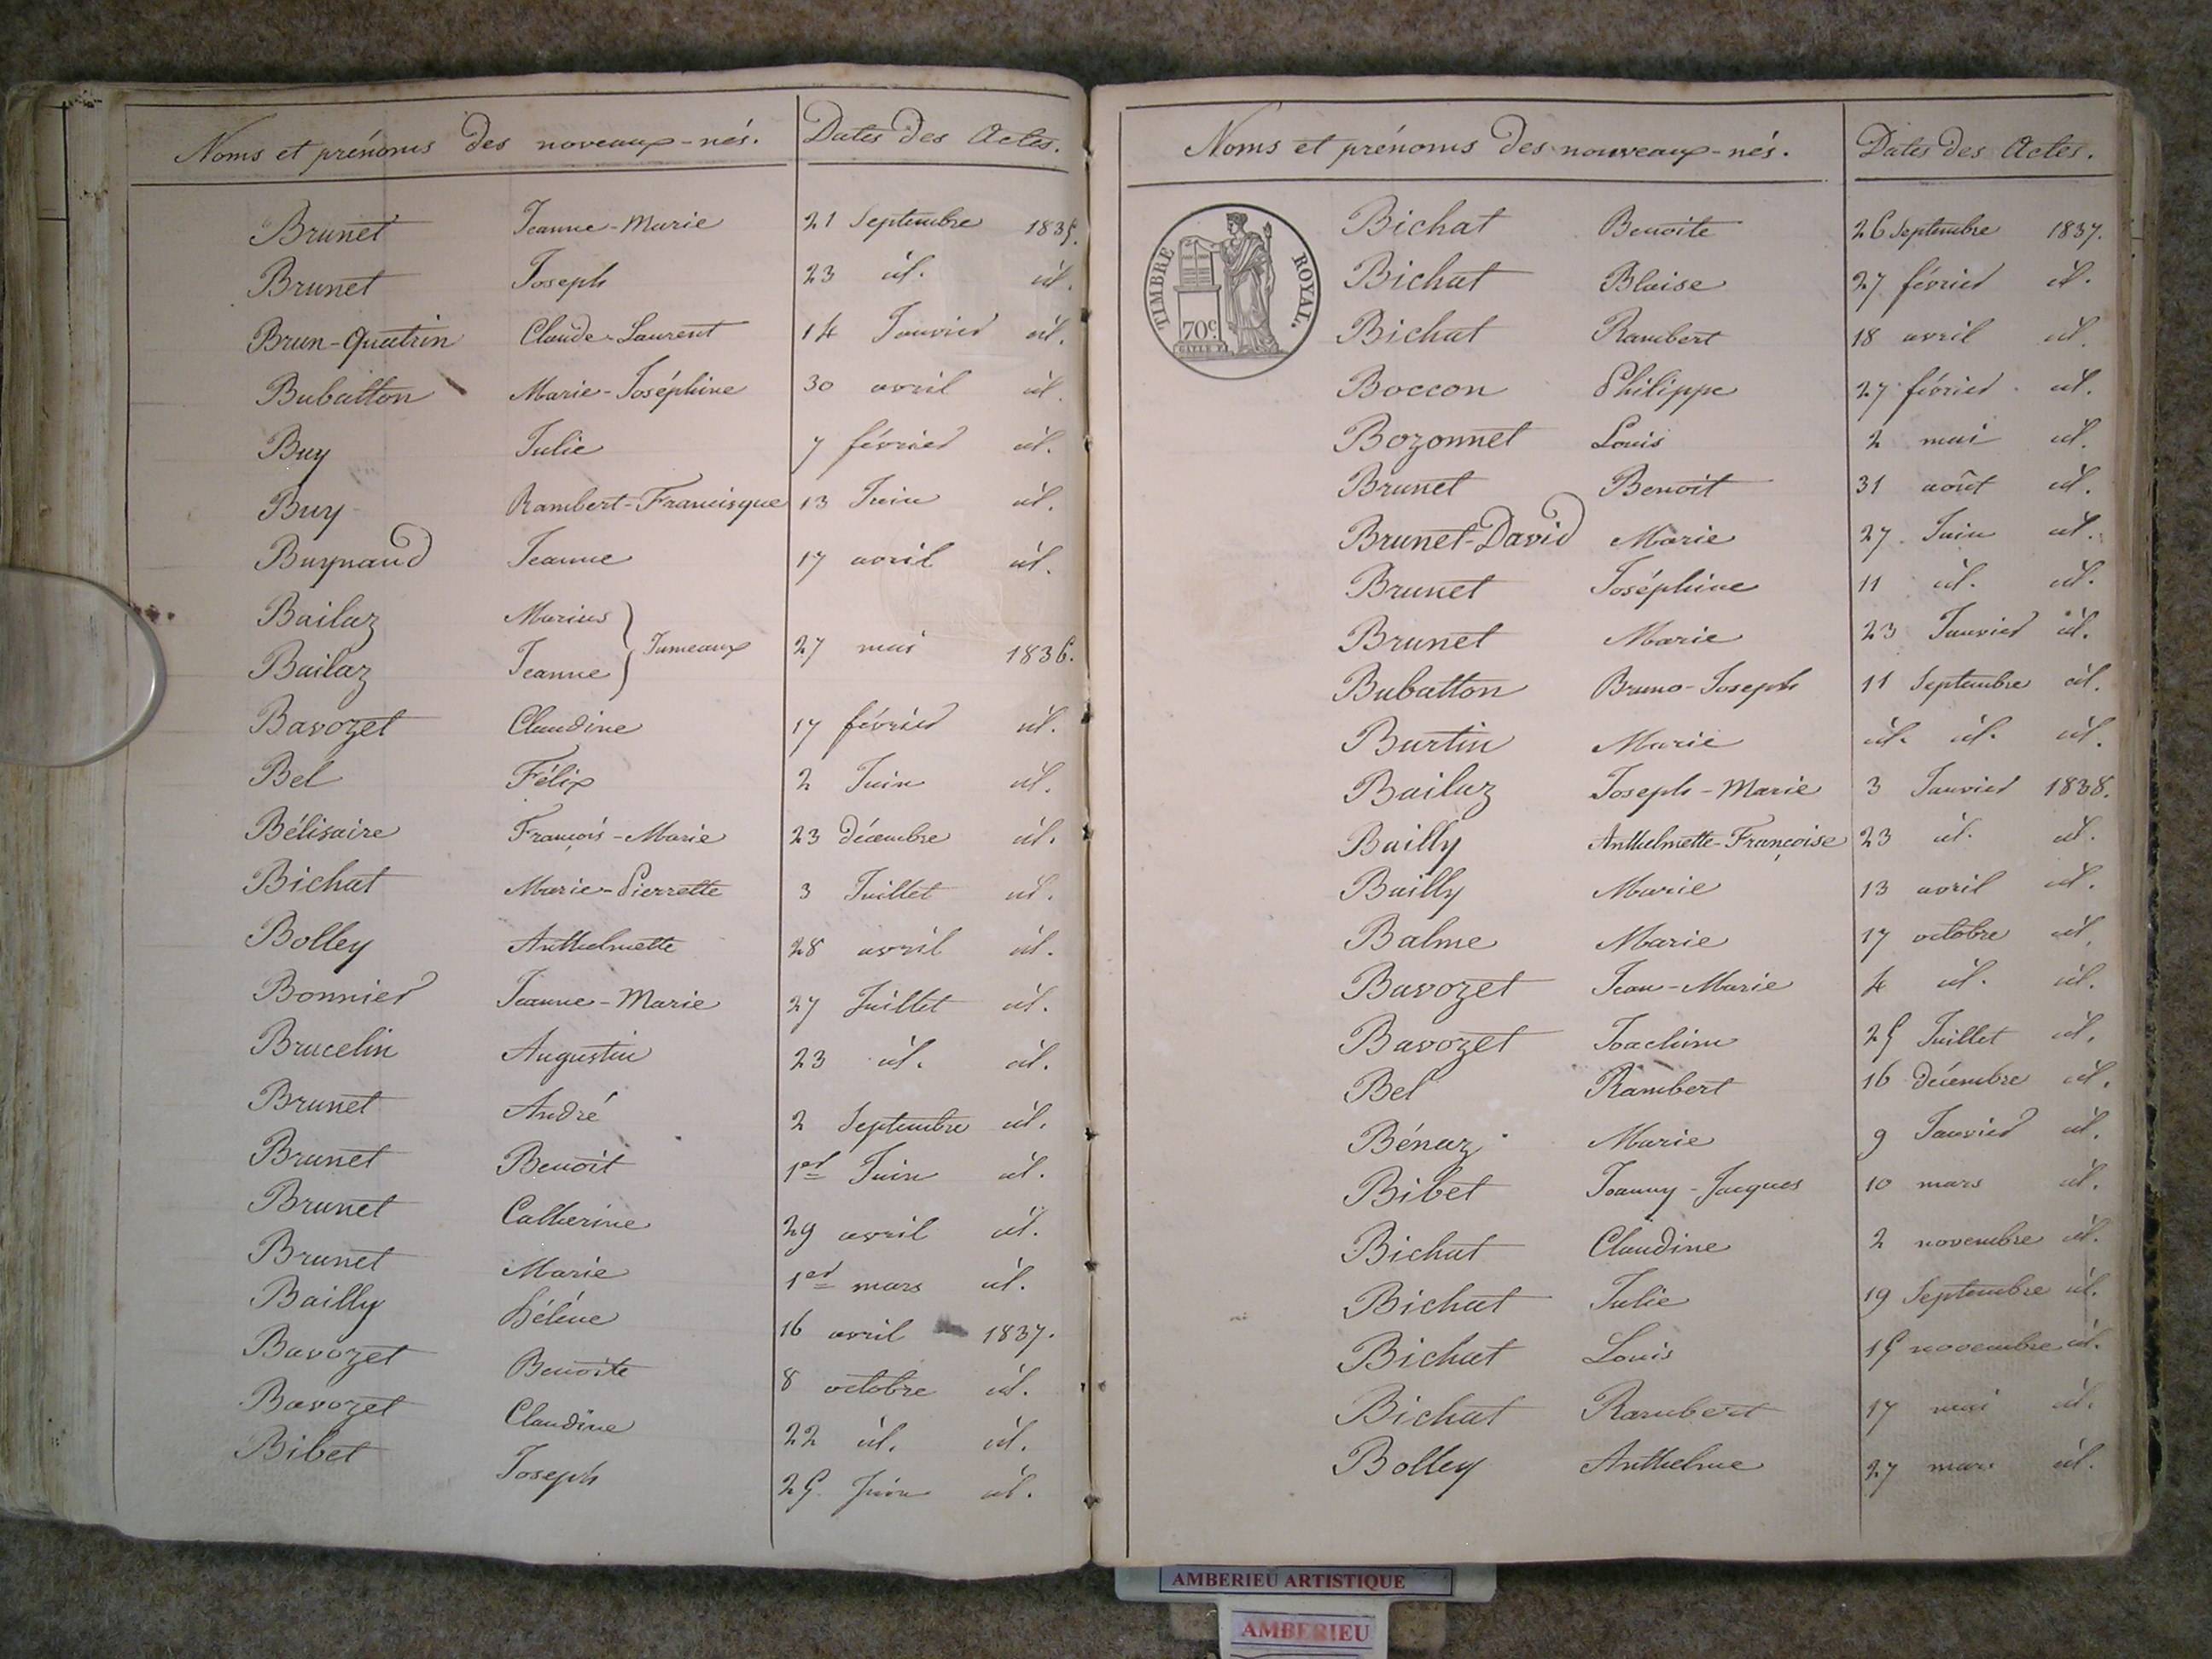 Noms et prénoms des noveaux-nés. Dates des Actes.
Brunet Jeanne-Marie 21 Septembre 1835.
Brunet Joseph 23 id. id.
Brun-Quatrin Claude-Laurent 14 Janvier id.
Bubatton Marie-Joséphine 30 avril id.
Buy Julie 7 février id.
Buy Rambert-Francisque 13 Juin id.
Buynaud Jeanne 17 avril id.
Bailaz Marius
Jumeaux 27 mai 1836.
Bailaz Jeanne
Bavozet Claudine 17 février id.
Bel Félix 2 Juin id.
Bélisaire François-Marie 23 décembre id.
Bichat Marie-Pierrette 3 Juillet id.
Bolley Anthelmette 28 avril id.
Bonnier Jeanne-Marie 27 Juillet id.
Brucelin Augustin 23 id. id.
Brunet André 2 Septembre id.
Brunet Benoit 1er Juin id.
Brunet Catherine 29 avril id.
Brunet Marie 1er mars id.
Bailly Hélène 16 avril 1837.
Bavozet Benoite 8 octobre id.
Bavozet Claudine 22 id. id.
Bibet Joseph 25 Juin id.
Noms et prénoms des nouveaux-nés. Dates des Actes.
TIMBRE ROYAL.
70c.
Bichat Benoite 26 Septembre 1837.
Bichat Blaise 27 février id.
Bichat Rambert 18 avril id.
Boccon Philippe 27 février id.
Bozonnet Louis 2 mai id.
Brunet Benoit 31 août id.
Brunet-David Marie 27 Juin id.
Brunet Joséphine 11 id. id.
Brunet Marie 23 Janvier id.
Bubatton Bruno-Joseph 11 Septembre id.
Burtin Marie id. id. id.
Bailaz Joseph-Marie 3 Janvier 1838.
Bailly Anthelmette-Françoise 23 id. id.
Bailly Marie 13 avril id.
Balme Marie 17 octobre id.
Bavozet Jean-Marie 4 id. id.
Bavozet Joachim 25 Juillet id.
Bel Rambert 16 décembre id.
Bénaz Marie 9 Janvier id.
Bibet Joanny-Jacques 10 mars id.
Bichat Claudine 2 novembre id.
Bichat Julie 19 Septembre id.
Bichat Louis 15 novembre id.
Bichat Rambert 17 mai id.
Bolley Anthelme 27 mars id.
AMBERIEU ARTISTIQUE
AMBERIEU